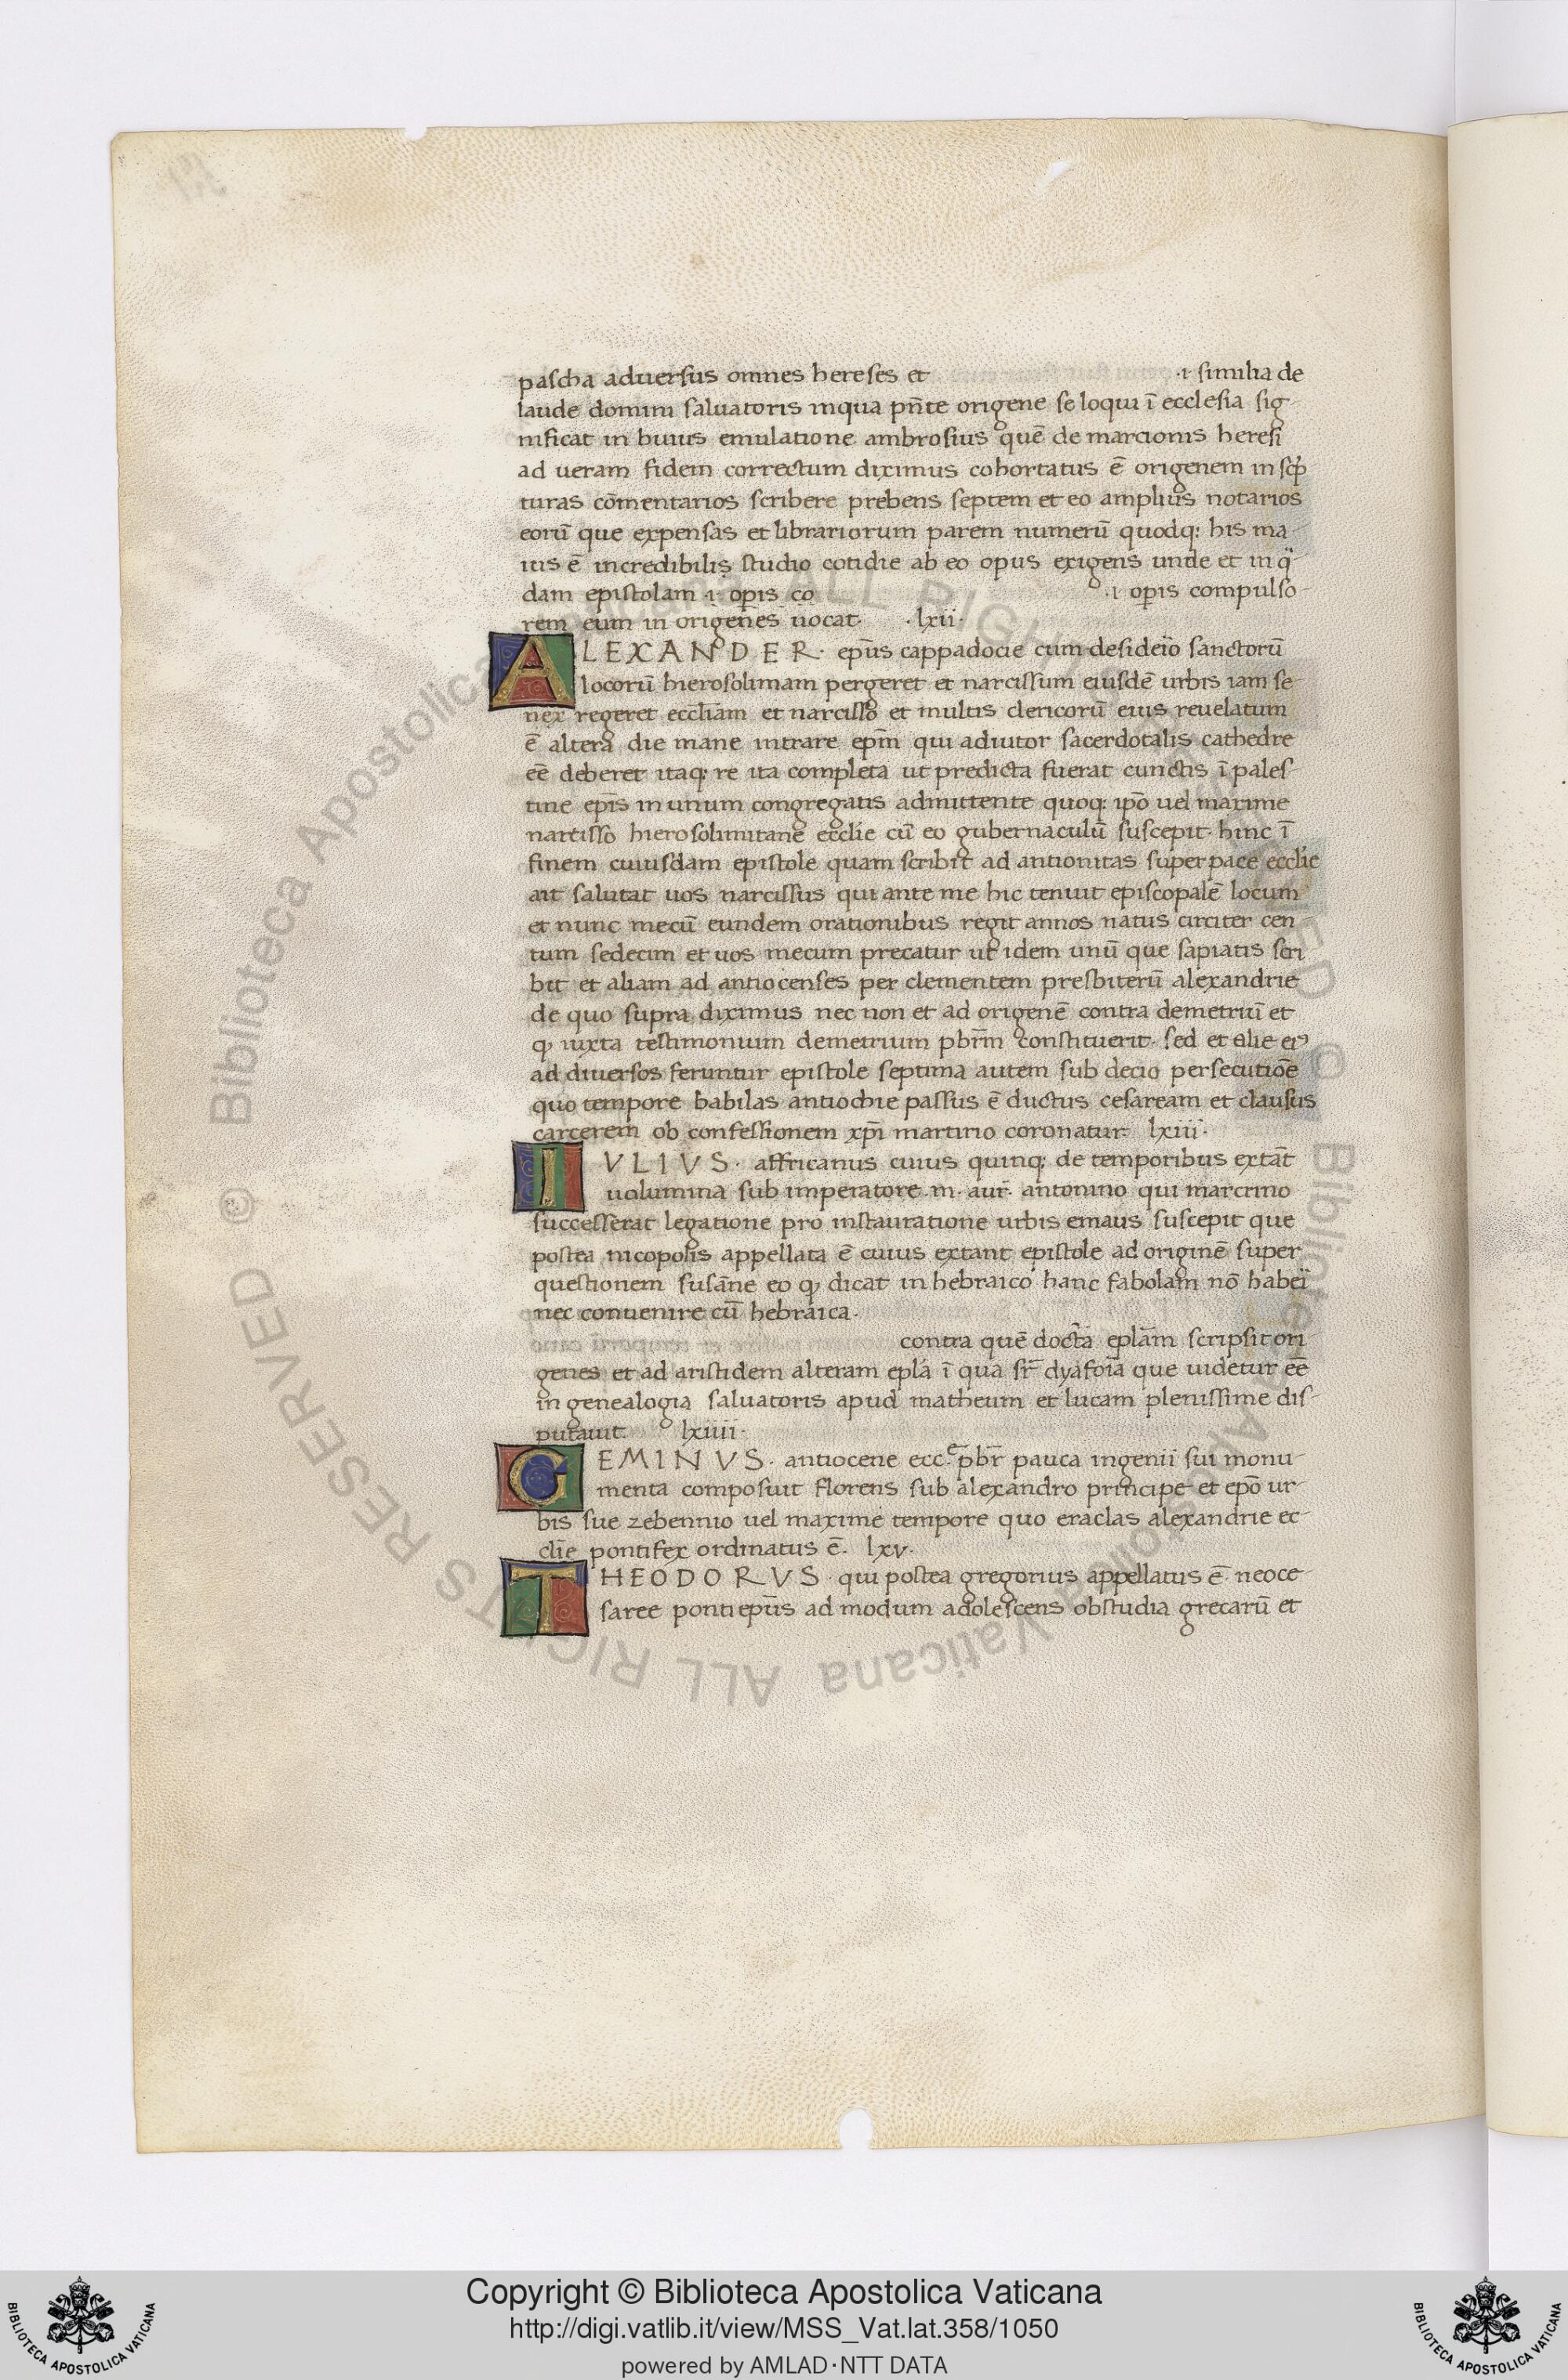 pascha aduersus omnes hereses et .i. similia de
laude domini saluatoris inqua pn̄te origene se loqui ī ecclesia sig-
nificat in huius emulatione ambrosius quē de marcionis heresi
ad ueram fidem correctum diximus cohortatus ē origenem in scp̄
turas cōmentarios scribere prebens septem et eo amplius notarios
eorū que expensas et librariorum parem numerū quodq; his ma-
ius ē incredibilis studio cotidie ab eo opus exigens unde et in q̈
dam epistolam .i. op̄is co .i. op̄is compulso-
rem eum in origenes uocat. .lxii.
ALEXANDER. ep̄us cappadocie cum desideīo sanctorū
locorū hierosolimam pergeret et narcissum eiusdē urbis iam se-
nex regeret eccl̄iam et narcisso et multis clericorū eius reuelatum
ē altera die mane intrare ep̄m qui adiutor sacerdotalis cathedre
eē deberet itaq; re ita completa ut predicta fuerat cunctis ī pales-
tine ep̄is in unum congregatis admittente quoq; ip̄o uel maxime
narcisso hierosolimitane eccl̄ie cū eo gubernaculū suscepit. hinc ī
finem cuiusdam epistole quam scribit ad antionitas super pace eccl̄ie
ait salutat uos narcissus qui ante me hic tenuit episcopalē locum
et nunc mecū eundem orationibus regit annos natus circiter cen-
tum sedecim et uos mecum precatur ut idem unū que sapiatis scri
bit et aliam ad antiocenses per clementem presbiterū alexandrie
de quo supra diximus nec non et ad origenē contra demetriū et
ꝙ iuxta testimonium demetrium pbr̄m constituerit. sed et alie ei9
ad diuersos feruntur epistole septima autem sub decio persecutiōe
quo tempore babilas antiochie passus ē ductus cesaream et clausus
carcerem ob confessionem xp̄i martirio coronatur lxiii.
IVLIVS. affricanus cuius quinq; de temporibus extāt
uolumina sub imperatore .m. aur̄. antonino qui marcrino
successerat legatione pro instauratione urbis emaus suscepit que
postea nicopolis appellata ē cuius extant epistole ad originē super
questionem susāne eo ꝙ dicat in hebraico hanc fabolam nō habeī
nec conuenire cū hebraica.
contra quē docta epl̄am scripsit ori
genes et ad aristidem alteram epl̄a ī qua sr̄ dyafoīa que uidetur eē
in genealogia saluatoris apud matheum et lucam plenissime dis-
putauit. lxiiii.
GEMINVS. antiocene ecc.e pbr̄ pauca ingenii sui monu-
menta composuit florens sub alexandro principe et ep̄o ur-
bis sue zebennio uel maxime tempore quo eraclas alexandrie ec-
cl̄ie pontifex ordinatus ē. lxv.
THEODORVS. qui postea gregorius appellatus ē neoce-
saree ponti ep̄us ad modum adolescens obstudia grecarū et
Copyright © Biblioteca Apostolica Vaticana
http://digi.vatlib.it/view/MSS_Vat.lat.358/1050
powered by AMLAD·NTT DATA
BIBLIOTECA APOSTOLICA VATICANA
BIBLIOTECA APOSTOLICA VATICANA
© Biblioteca Apostolica Vaticana ALL RIGHTS RESERVED © Biblioteca Apostolica Vaticana ALL RIGHTS RESERVED